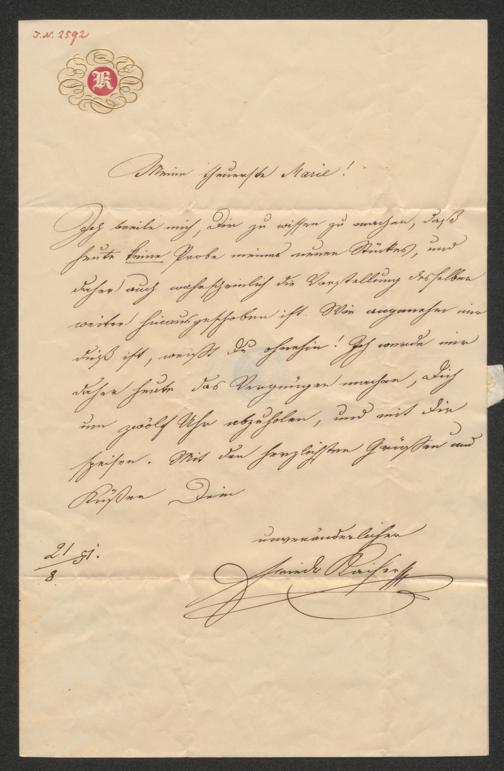 I.N. 2592
K
Meine theuerste Marie!
Ich beeile mich, Dir zu wissen zu machen, daß
heute keine Probe meines neuen Stückes, und
daher auch wahrscheinlich die Vorstellung desselben
weiter hinausgeschoben ist. Wie angenehm mir
dieß ist, weißt Du ohnehin! Ich werde mir
daher heute das Vergnügen machen, Dich
um zwölf Uhr abzuholen, und mit Dir
speisen. Mit den herzlichsten Grüßen und
Küßen Dein
unveränderlicher
21/8 51.
Friedr Kaiser